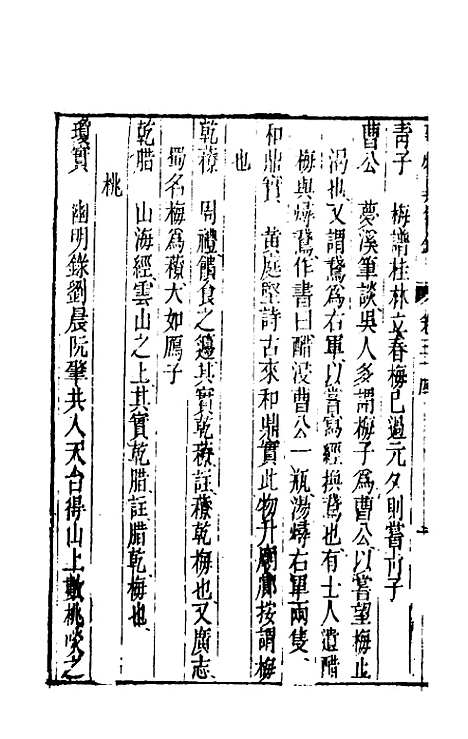 青子　梅譜桂林立春梅已過元夕則嘗青子
曹公　夢溪筆談吳人多謂梅子爲曹公以嘗望梅止
渴也又謂鵞爲右軍以嘗寫經換鵞也有士人遺醋
梅與燖鵞作書曰醋浸曹公一瓶湯燖右軍兩隻
和鼎實　黃庭堅詩古來和鼎實此物升廟廊按謂梅
也
乾䕩　周禮饋食之籩其實乾䕩註䕩乾梅也又廣志
蜀名梅爲䕩大如鴈子
乾腊　山海經雲山之上其實乾腊註腊乾梅也
桃
瓊實　幽明錄劉晨阮肇共入天台得山上數桃啖之